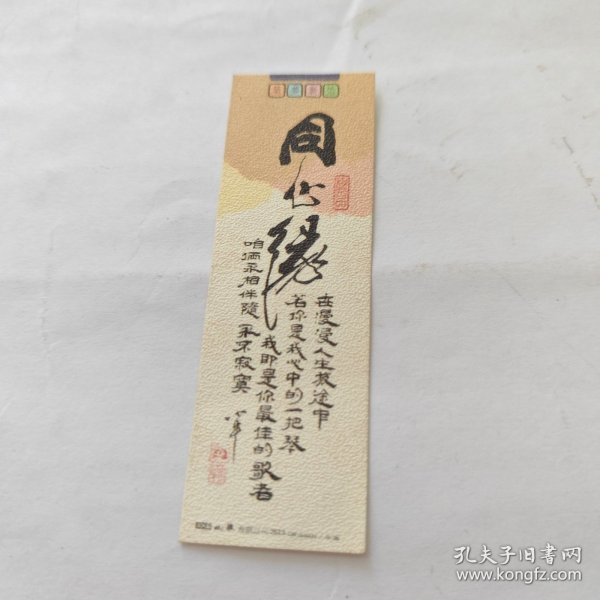 同心缘
在漫漫人生旅途中
若你是我心中的一把琴
我即是你最佳的歌者
咱俩永相伴隨
永不寂寞
孔夫子旧书网
www.kongfz.com